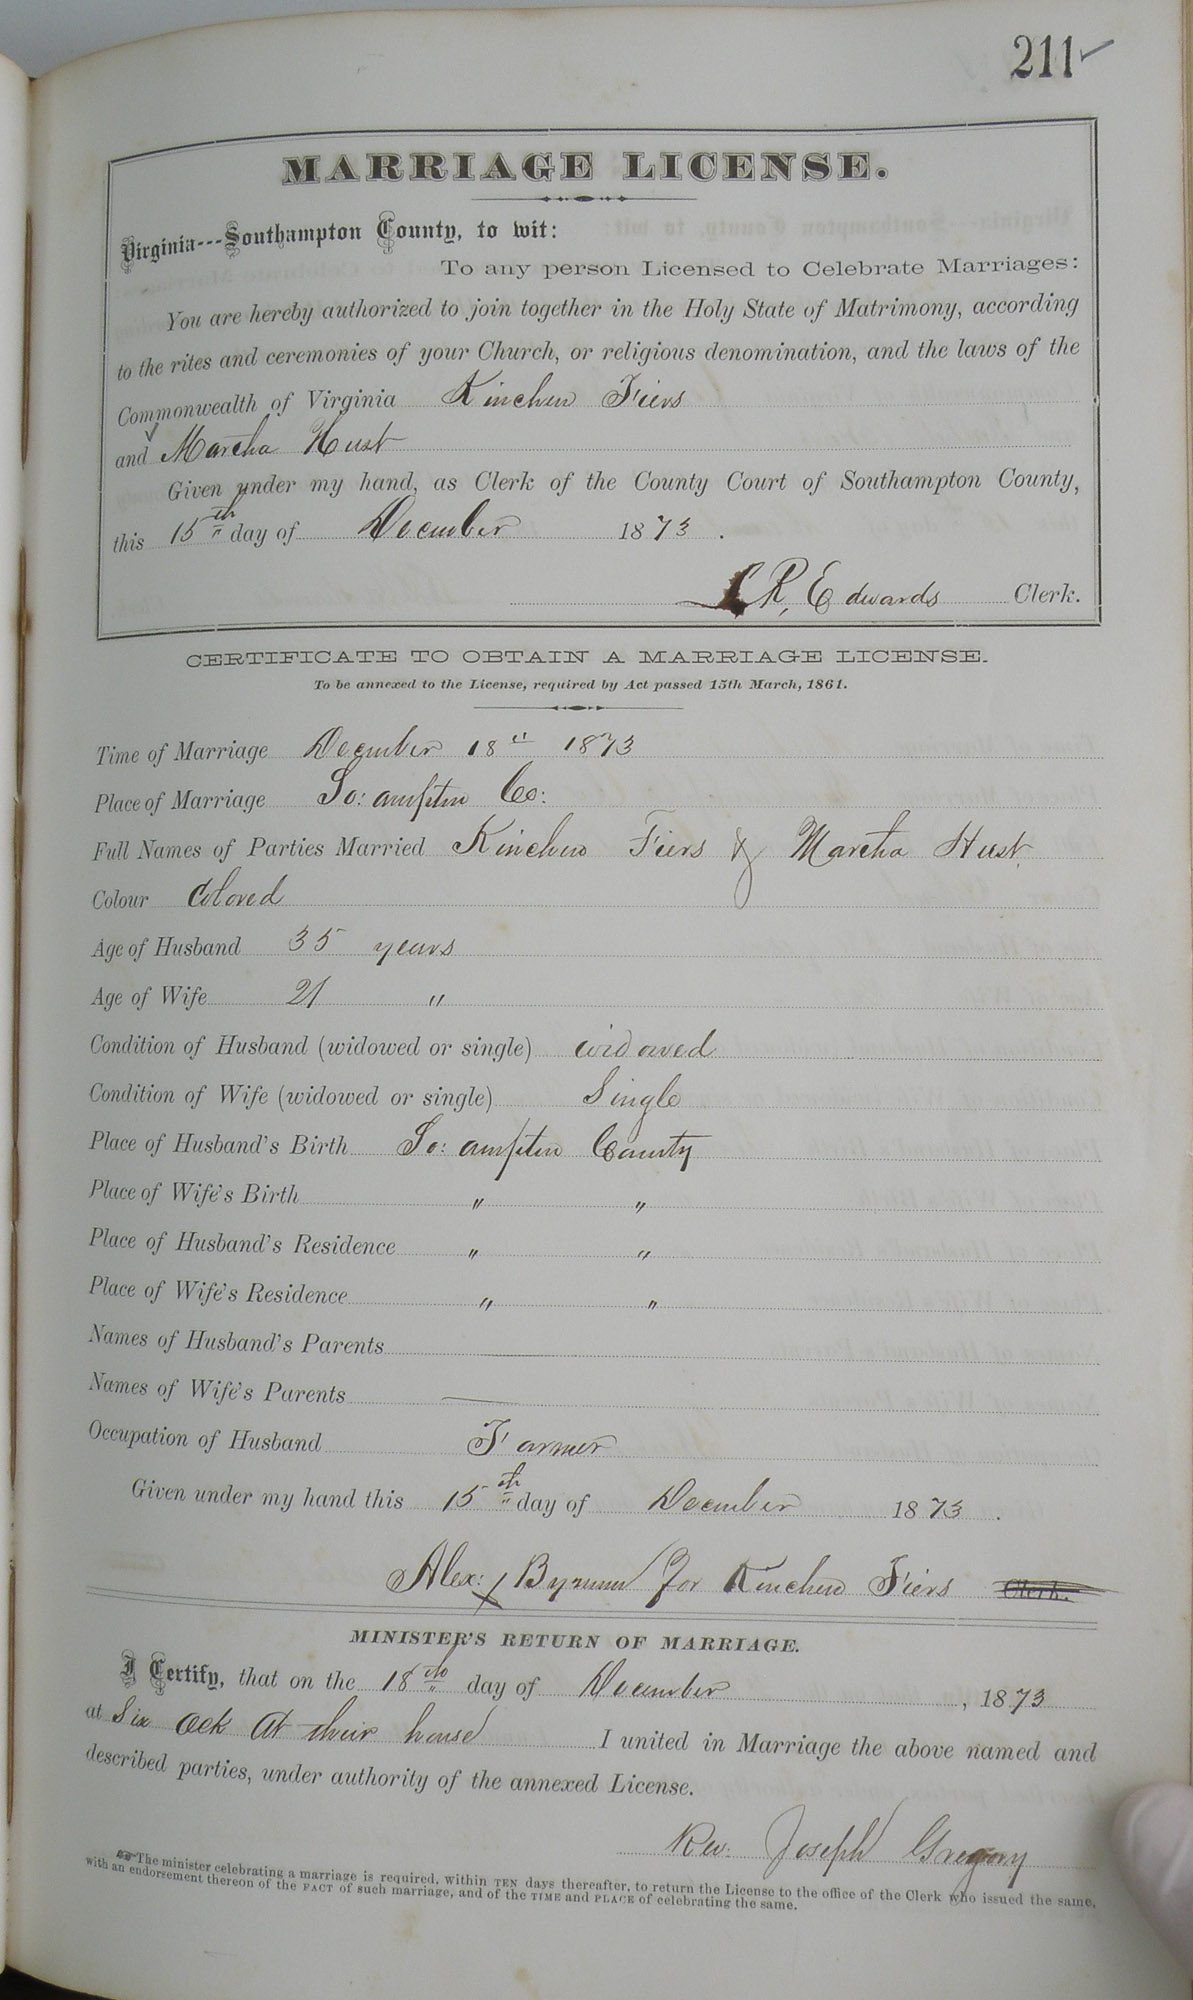 211
MARRIAGE LICENSE.
Virginia---Southampton County, to wit:
To any person Licensed to Celebrate Marriages:
You are hereby authorized to join together in the Holy State of Matrimony, according
to the rites and ceremonies of your Church, or religious denomination, and the laws of the
Commonwealth of Virginia Kinchen Fiers
and Martha Hust
Given under my hand, as Clerk of the County Court of Southampton County,
this 15th day of December 1873.
L. R. Edwards Clerk.
CERTIFICATE TO OBTAIN A MARRIAGE LICENSE.
To be annexed to the License, required by Act passed 15th March, 1861.
Time of Marriage December 18" 1873
Place of Marriage So: ampton Co:
Full Names of Parties Married Kinchen Fiers & Martha Hust
Colour Colored
Age of Husband 35 years
Age of Wife 21 "
Condition of Husband (widowed or single) widowed
Condition of Wife (widowed or single) Single
Place of Husband's Birth So: ampton County
Place of Wife's Birth " "
Place of Husband's Residence " "
Place of Wife's Residence " "
Names of Husband's Parents ——
Names of Wife's Parents ——
Occupation of Husband Farmer
Given under my hand this 15th day of December 1873.
Alex: X Bynum for Kinchen Fiers Clerk.
MINISTER'S RETURN OF MARRIAGE.
I Certify, that on the 18th day of December, 1873
at Six ock At their house I united in Marriage the above named and
described parties, under authority of the annexed License.
Rev. Joseph Gregory
The minister celebrating a marriage is required, within TEN days thereafter, to return the License to the office of the Clerk who issued the same,
with an endorsement thereon of the FACT of such marriage, and of the TIME and PLACE of celebrating the same.